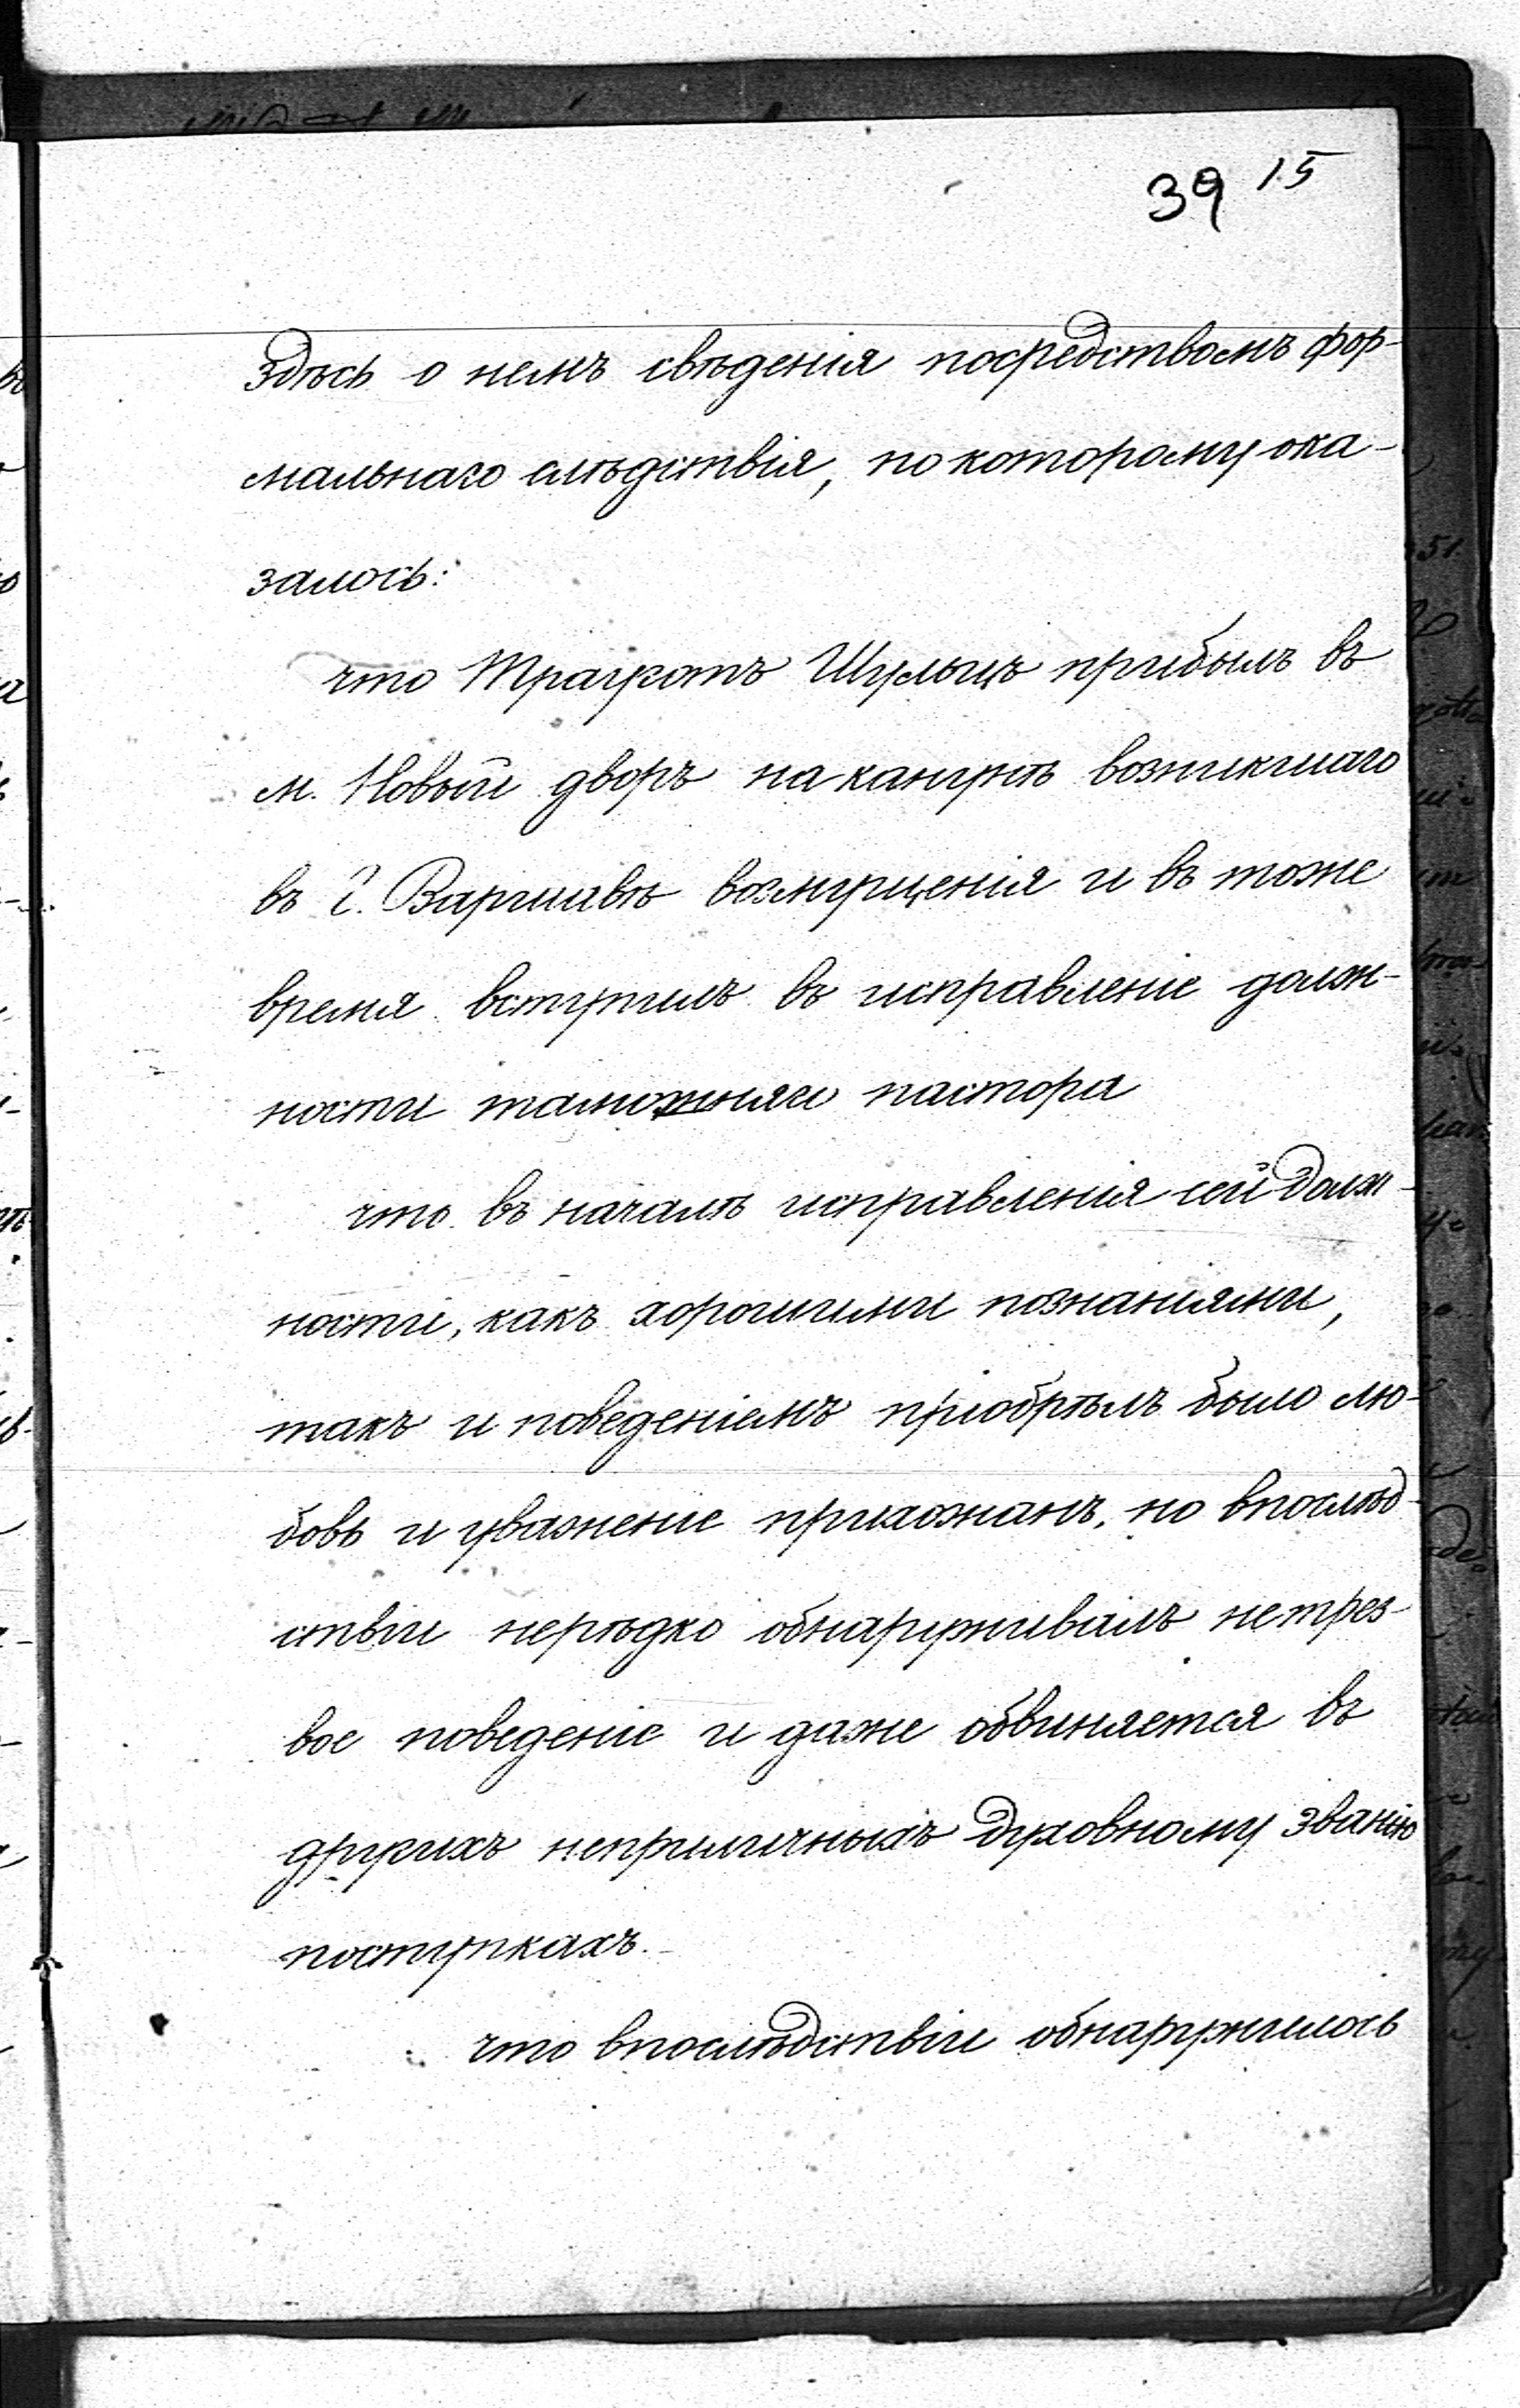 39 15
Здѣсь о немъ свѣдения посредствомъ фор-
мальнаго слѣдствія, по которому ока-
залось:
что Трауготъ Шульцъ прибылъ въ
м. Новый дворъ на канунѣ возникшаго
въ г. Варшавѣ возмущенія и въ тоже
время вступилъ въ исправленіе долж-
ности таможняго пастора
что въ началѣ исправленія сей долж-
ности, какъ хорошими познаниями,
такъ и поведеніемъ пріобрѣлъ было лю-
бовь и уваженіе прихожанъ, но впослѣд-
ствіи нерѣдко обнаруживалъ нетрез-
вое поведеніе и даже обвиняется въ
другихъ неприличныхъ духовному званію
поступкахъ.
что впослѣдствіи обнаружилось